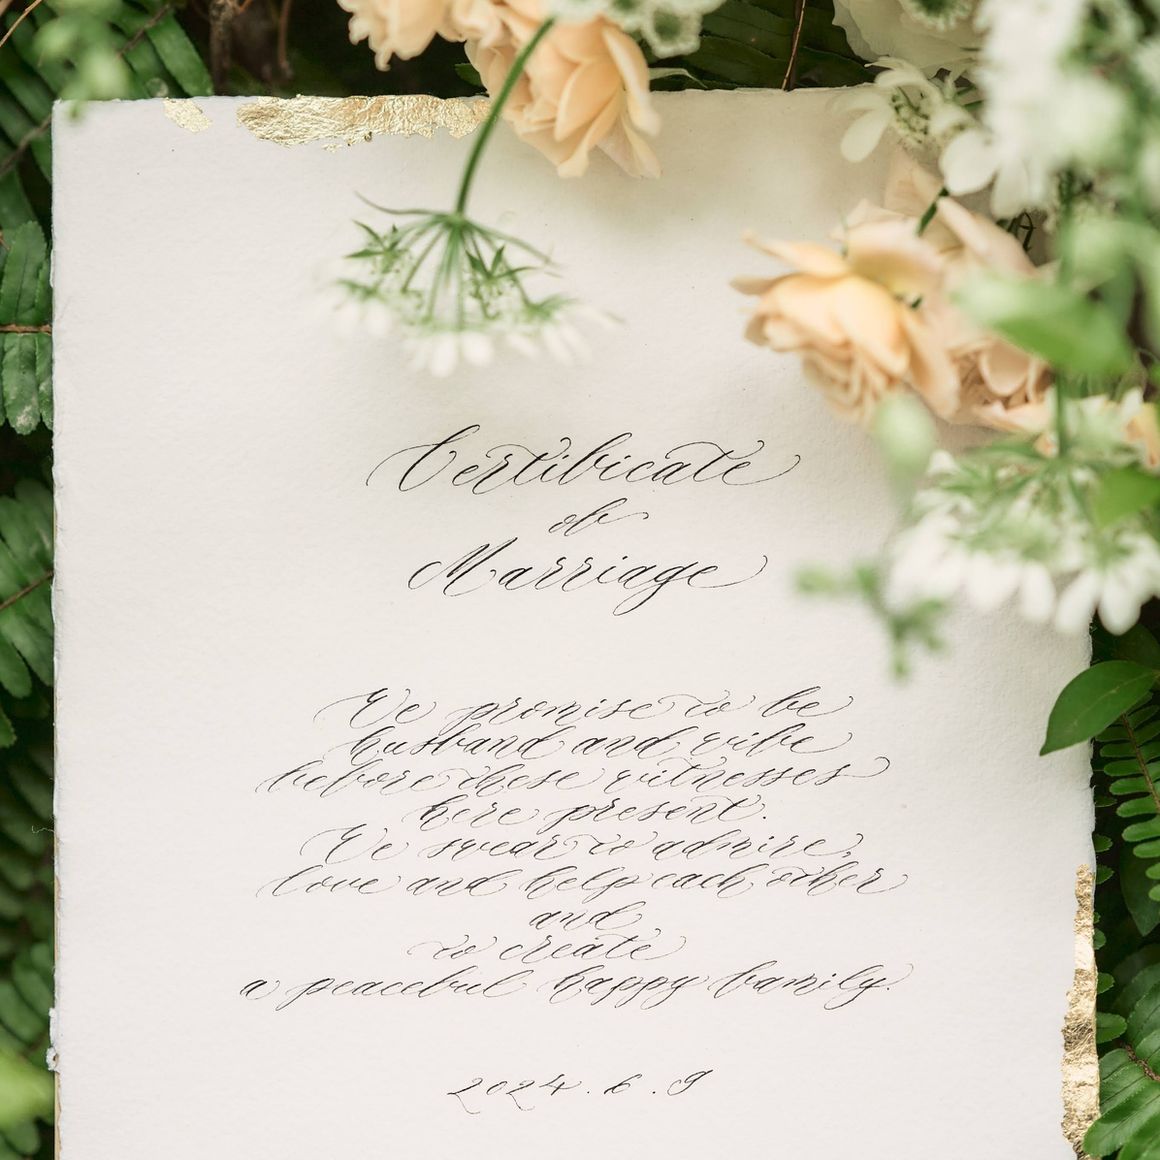 Certificate
of
Marriage
We promise to be
husband and wife
before these witnesses
here present.
We swear to admire,
love and help each other
and
to create
a peaceful happy family.
2024.6.9